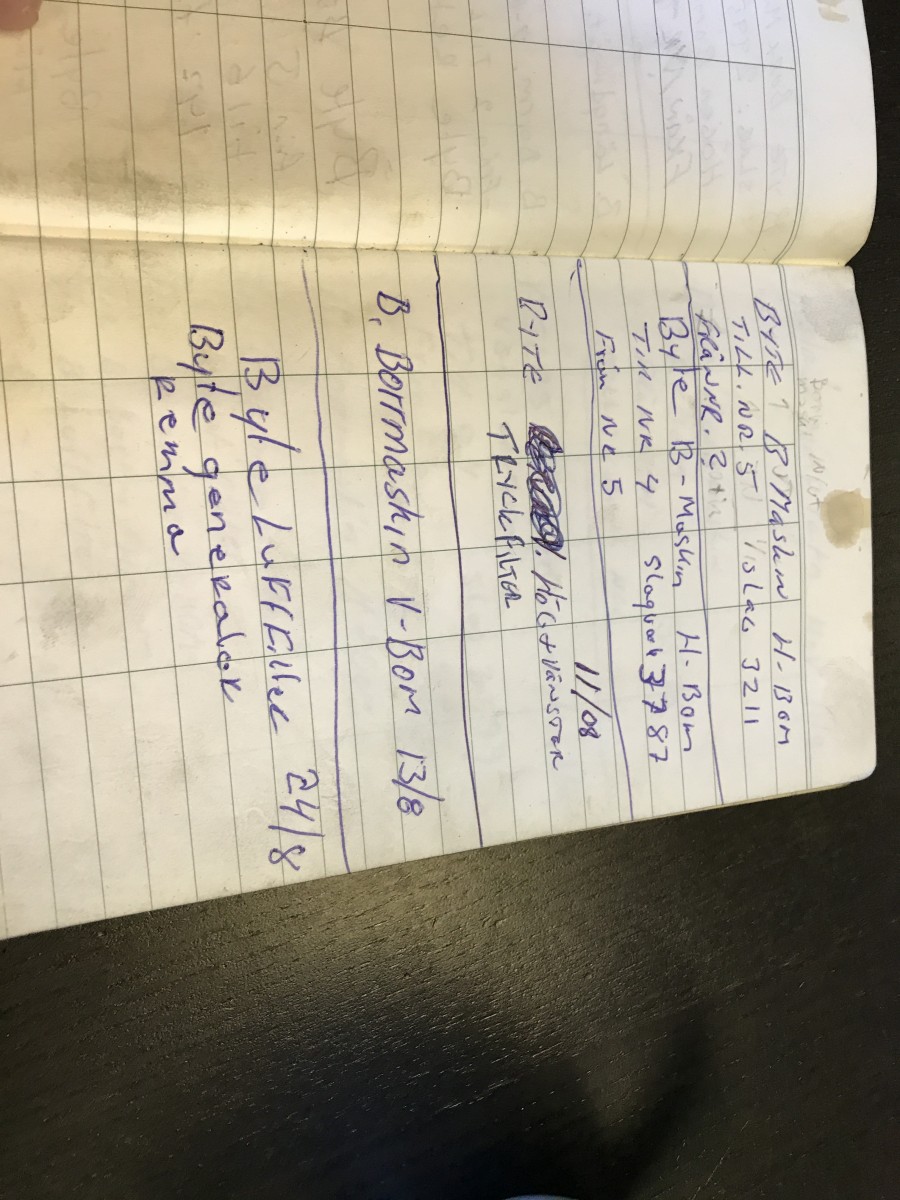 BYTE B Maskin H-Bom
TILL. NR. 5 Vislag 3211
FRÅN NR. 2
Byte B-Maskin H-Bom
Till NR 4 Slagverk 3787
Från NR 5
11/08
BYTE HÖG+VÄNSTER
TRYCKFILTER
B. Borrmaskin V-Bom 13/8
Byte Luftfilter 24/8
Byte generator
Remma